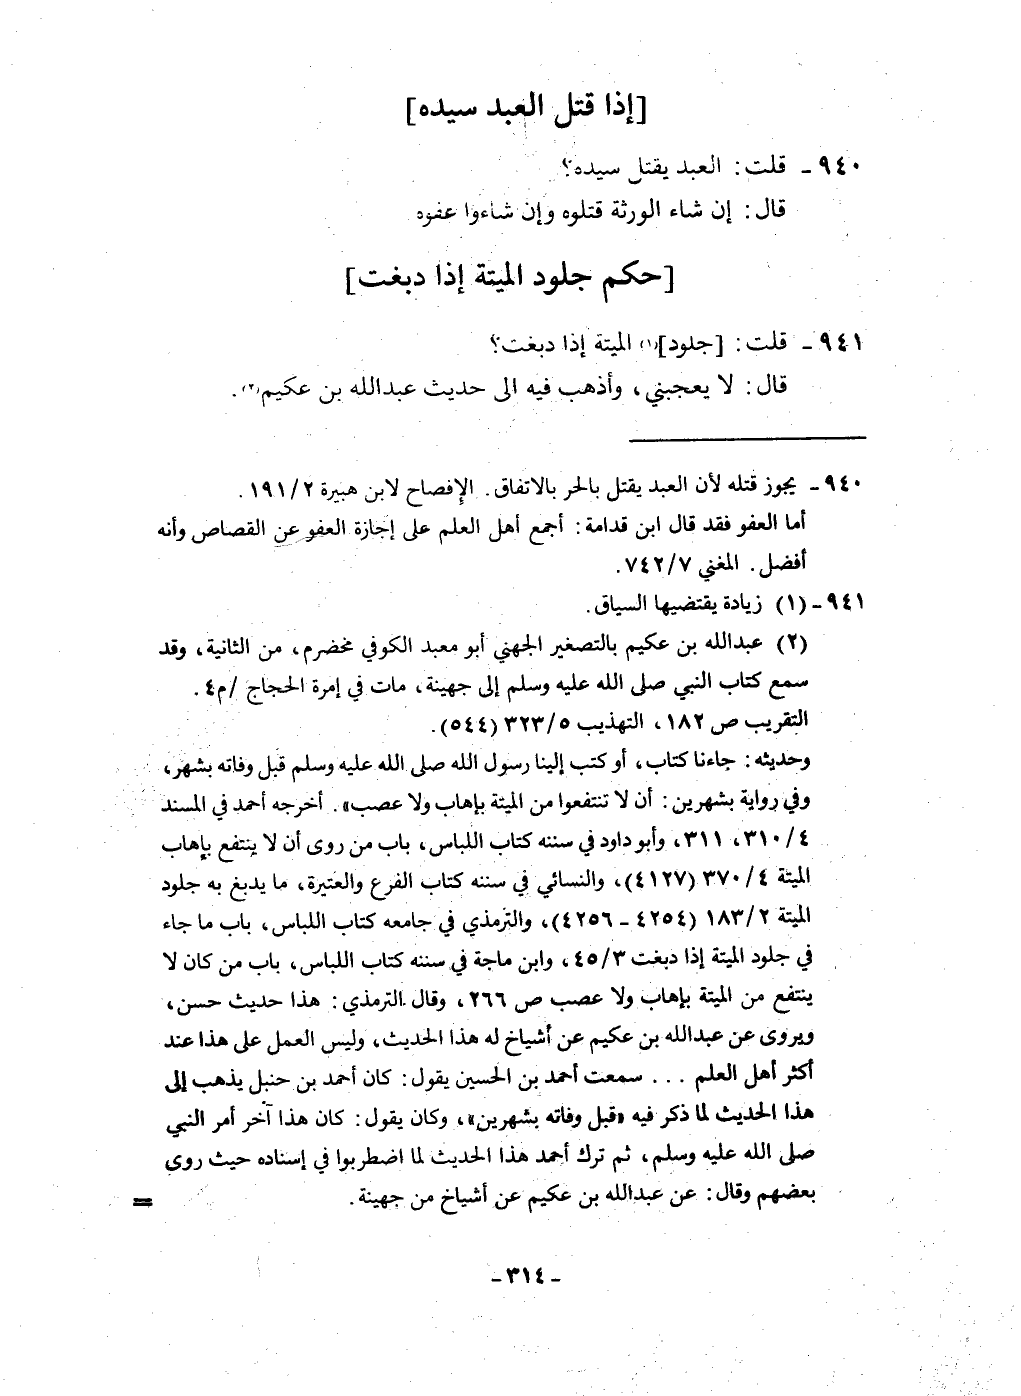 [إذا قتل العبد سيده]
٩٤٠ ـ قلت: العبد يقتل سيده؟
قال: إن شاء الورثة قتلوه وإن شاءوا عفوه
[حكم جلود الميتة إذا دبغت]
٩٤١ ـ قلت: [جلود](١) الميتة إذا دبغت؟
قال: لا يعجبني، وأذهب فيه الى حديث عبدالله بن عكيم(٢).
٩٤٠ ـ يجوز قتله لأن العبد يقتل بالحر بالاتفاق. الإفصاح لابن هبيرة ١٩١/٢.
أما العفو فقد قال ابن قدامة: أجمع أهل العلم على إجازة العفو عن القصاص وأنه
أفضل. المغني ٧٤٢/٧.
٩٤١ ـ (١) زيادة يقتضيها السياق.
(٢) عبدالله بن عكيم بالتصغير الجهني أبو معبد الكوفي مخضرم، من الثانية، وقد
سمع كتاب النبي صلى الله عليه وسلم إلى جهينة، مات في إمرة الحجاج /م٤.
التقريب ص ١٨٢، التهذيب ٣٢٣/٥ (٥٤٤).
وحديثه: جاءنا كتاب، أو كتب إلينا رسول الله صلى الله عليه وسلم قبل وفاته بشهر،
وفي رواية بشهرين: أن لا تنتفعوا من الميتة بإهاب ولا عصب». أخرجه أحمد في المسند
٣١٠/٤، ٣١١، وأبو داود في سننه كتاب اللباس، باب من روى أن لا ينتفع بإهاب
الميتة ٣٧٠/٤ (٤١٢٧)، والنسائي في سننه كتاب الفرع والعتيرة، ما يدبغ به جلود
الميتة ١٨٣/٢ (٤٢٥٤ ـ ٤٢٥٦)، والترمذي في جامعه كتاب اللباس، باب ما جاء
في جلود الميتة إذا دبغت ٤٥/٣، وابن ماجة في سننه كتاب اللباس، باب من كان لا
ينتفع من الميتة بإهاب ولا عصب ص ٢٦٦، وقال الترمذي: هذا حديث حسن،
ويروى عن عبدالله بن عكيم عن أشياخ له هذا الحديث، وليس العمل على هذا عند
أكثر أهل العلم ... سمعت أحمد بن الحسين يقول: كان أحمد بن حنبل يذهب إلى
هذا الحديث لما ذكر فيه «قبل وفاته بشهرين»، وكان يقول: كان هذا آخر أمر النبي
صلى الله عليه وسلم، ثم ترك أحمد هذا الحديث لما اضطربوا في إسناده حيث روى
بعضهم وقال: عن عبدالله بن عكيم عن أشياخ من جهينة. =
ـ ٣١٤ ـ